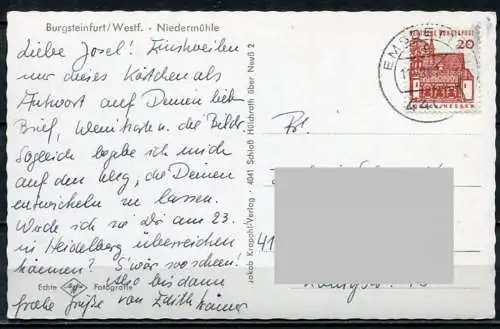 Burgsteinfurt/Westf. - Niedermühle
Liebe Josel! Einstweilen
nur dieses Kärtchen als
Antwort auf Deinen lieb
Brief, Wenn die Bilder
Sogleich begebe ich mich
auf den Weg, die Deinen
entwickeln zu lassen.
Würde ich sie Dir am 23.
in Heidelberg überreichen
können? S'wär so schön!
Also bis dann
frohe Grüße von Edith
Echte Agfa Fotografie
Jakob Krapohl-Verlag · 4041 Schloß Hülchrath über Neuß 2
DEUTSCHE BUNDESPOST
20
HESSEN
EMS
44
Frl.
41